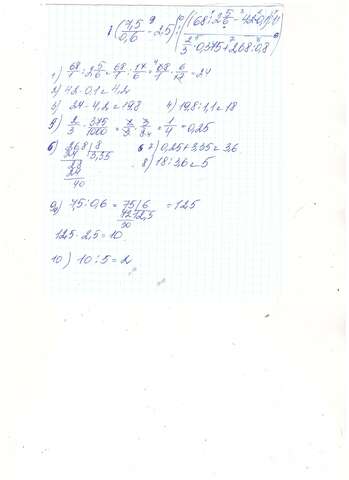 (7,5/0,6 - 2,5) : (68 : 2 5/6 - 42·0,1) : 1,1 / (2/3 · 0,375 + 26,8 : 0,8)
1) 68/1 : 2 5/6 = 68/1 : 17/6 = 68/1 · 6/17 = 24
2) 42 · 0,1 = 4,2
3) 24 - 4,2 = 19,8 4) 19,8 : 1,1 = 18
5) 2/3 · 375/1000 = 2/3 · 3/8 = 1/4 = 0,25
6) 268 | 8
24 3,35
28
24
40
7) 0,25 + 3,35 = 3,6
8) 18 : 3,6 = 5
9) 7,5 : 0,6 = 75 | 6 = 12,5
12,5
30
12,5 - 2,5 = 10
10) 10 : 5 = 2